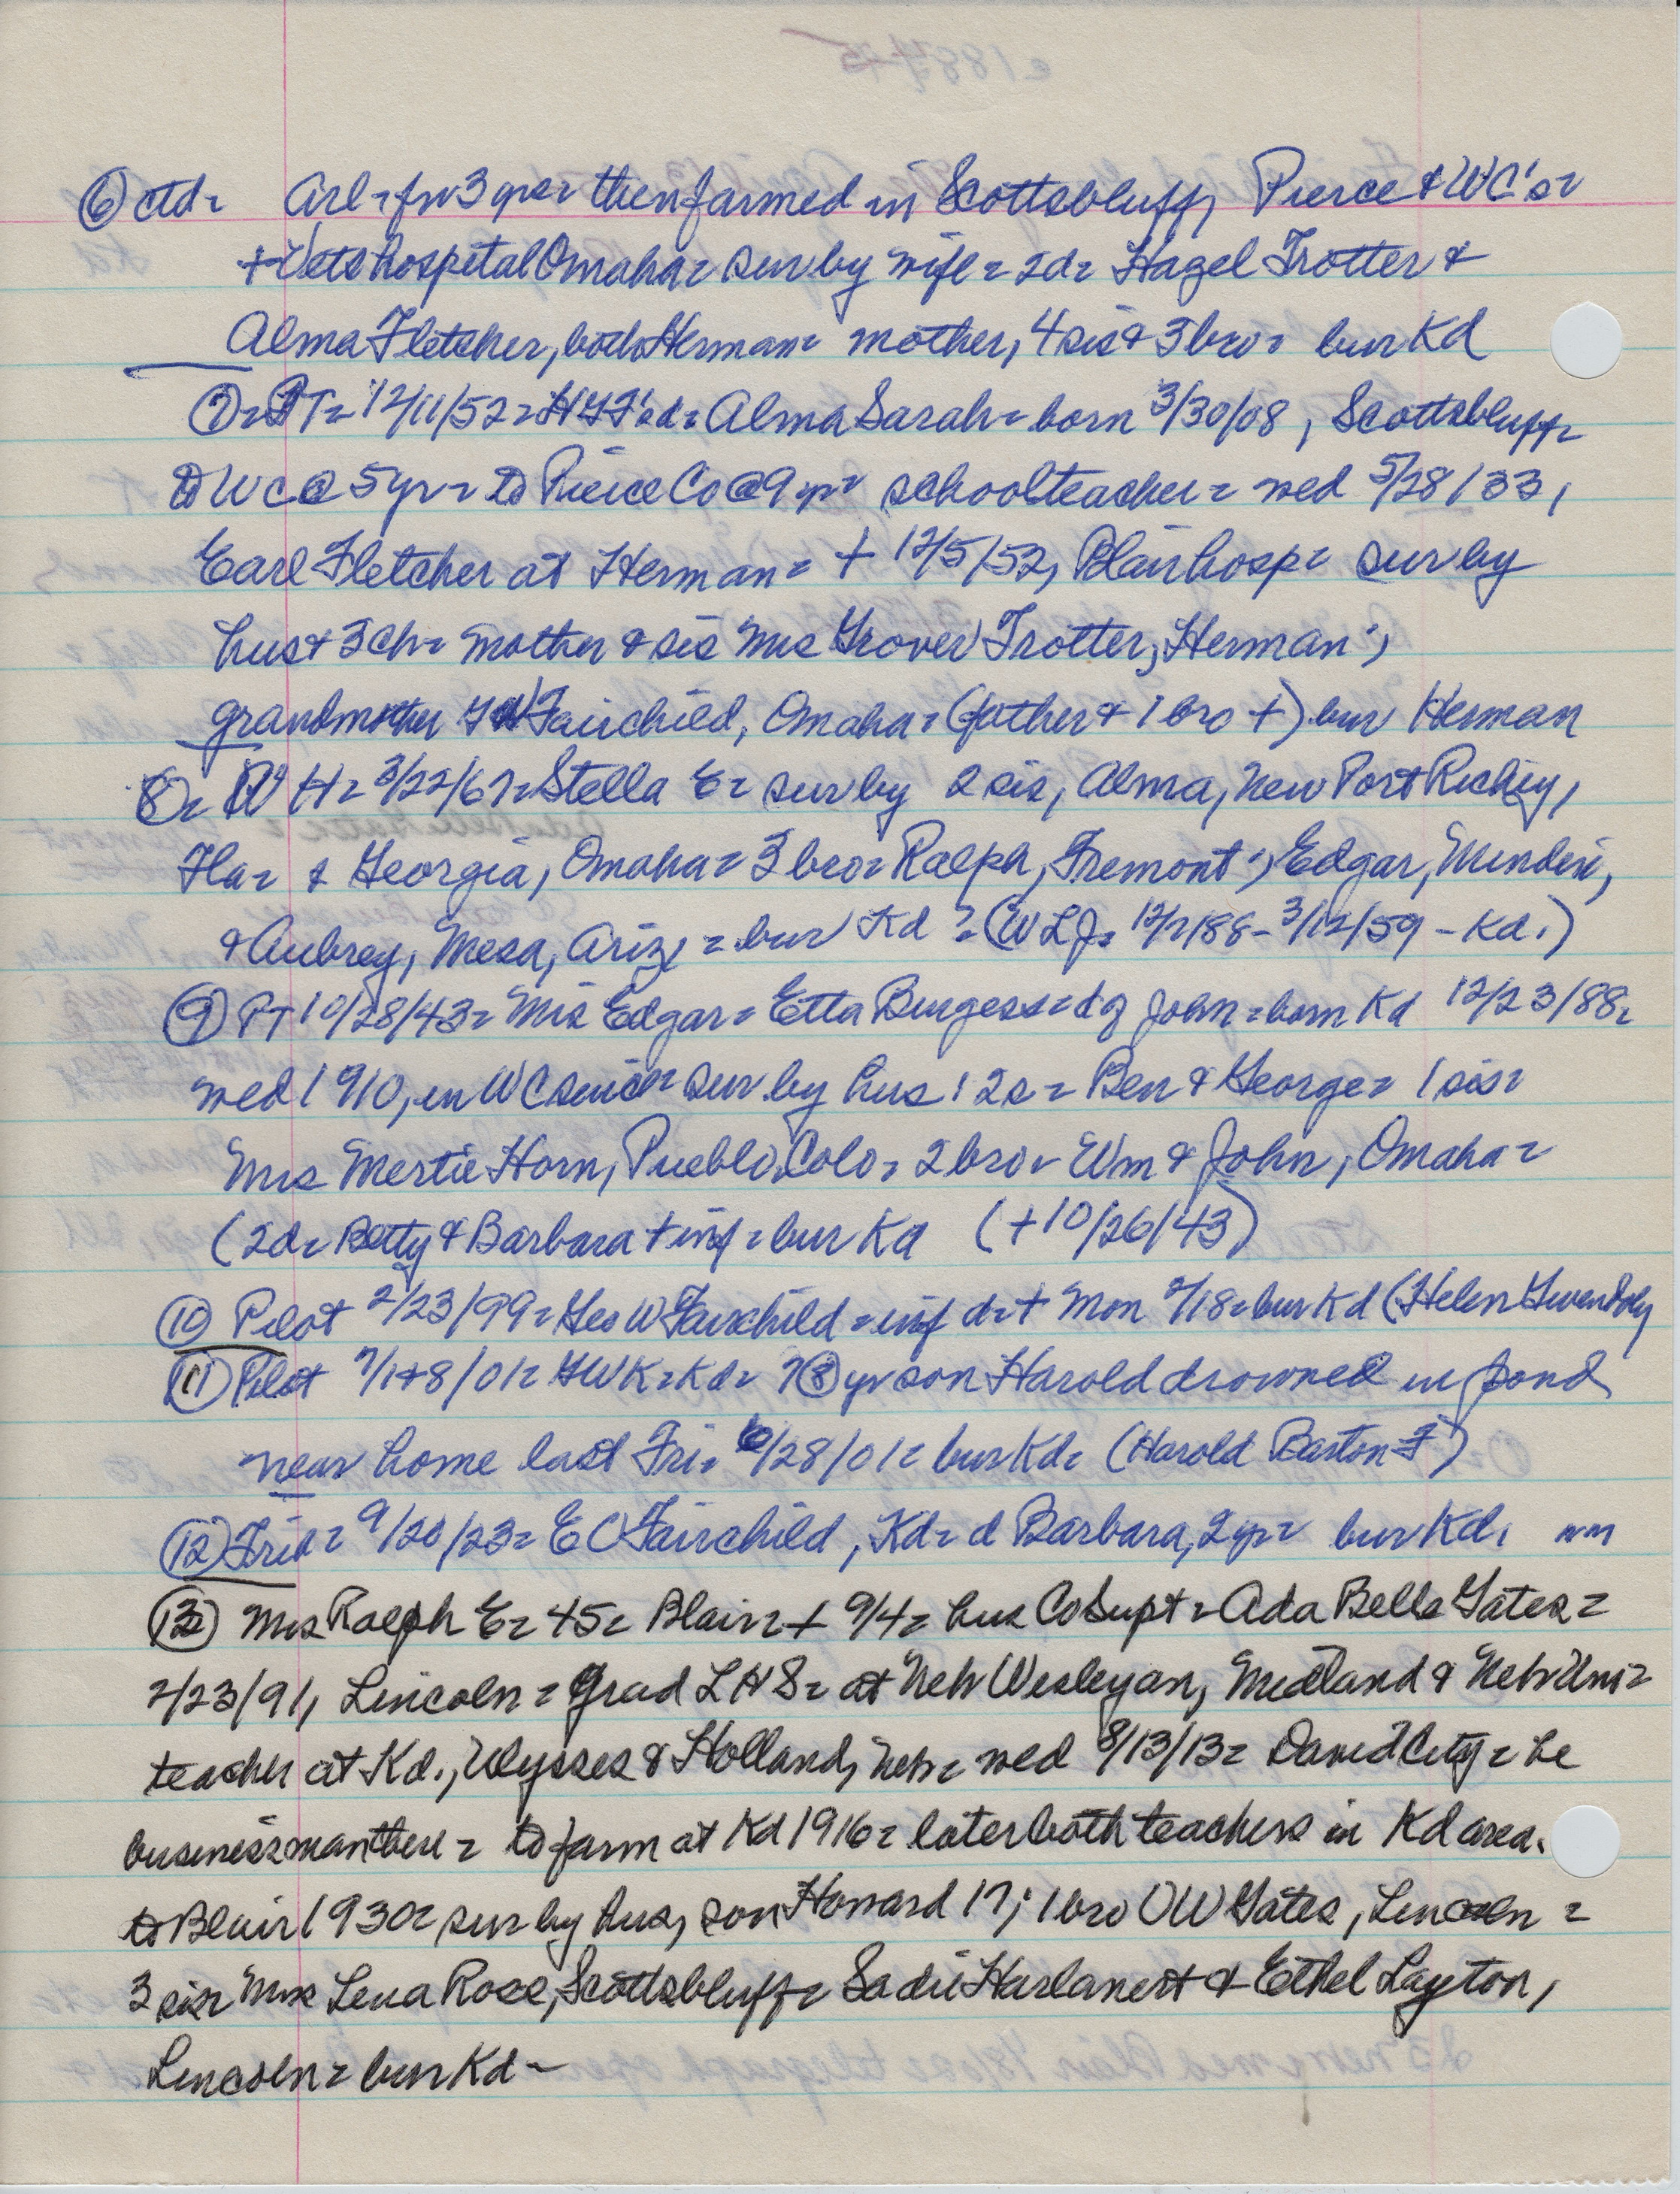 ⑥ ctd= Arl= for 3 yrs= then farmed in Scottsbluff, Pierce & WC's=
+ Vets hospital Omaha= sur by wife= 2d= Hazel Trotter &
Alma Fletcher, both Herman= mother, 4 sis & 3 bro= bur Kd
⑦= PT= 12/11/52= HYF's d= Alma Sarah= born 3/30/08, Scottsbluff=
to WC @ 5 yr= to Pierce Co @ 9 yr= schoolteacher= wed 5/28/33,
Earl Fletcher at Herman= + 12/5/52, Blair hosp= sur by
hus & 3 ch= mother & sis Mrs Grover Trotter, Herman;
grandmother GW Fairchild, Omaha= (father & 1 bro +) bur Herman
⑧= WH= 3/22/67= Stella E= sur by 2 sis, Alma, New Port Richey,
Fla= & Georgia, Omaha= 3 bro= Ralph, Fremont; Edgar, Minden,
& Aubrey, Mesa, Ariz,= bur Kd = (WLJ= 12/2/88- 3/12/59 - Kd.)
⑨ PT 10/28/43= Mrs Edgar= Etta Burgess= d of John= born Kd 12/23/88=
wed 1910, in WC since= sur by hus; 2s= Ben & George= 1 sis=
Mrs Mertie Horn, Pueblo, Colo= 2 bro= Wm & John, Omaha=
(2d= Betty & Barbara + inf= bur Kd (+10/26/43)
⑩ Pilot 2/23/99= Geo W Fairchild= inf d= + Mon 2/18= bur Kd (Helen Gwendoly
⑪ Pilot 7/1+8/01= GWK= Kd= 7⑧ yr son Harold drowned in pond
near home last Fri= 6/28/01= bur Kd= (Harold Barton F)
⑫ Trib= 9/20/23= EC Fairchild, Kd= d Barbara, 2 yr= bur Kd,
⑬ Mrs Ralph E= 45= Blair= + 9/4= hus Co Supt= Ada Belle Gates=
2/23/91, Lincoln= Grad LHS= at Neb Wesleyan, Midland & Neb Uni=
teacher at Kd., Ulysses & Holland, Neb= wed 8/13/13= David City= he
businessman there= to farm at Kd 1916= later both teachers in Kd area.
to Blair 1930= sur by hus, son Howard 17; 1 bro OW Gates, Lincoln=
3 sis= Mrs Lena Rose, Scottsbluff= Sadie Harlanert & Ethel Layton,
Lincoln= bur Kd-